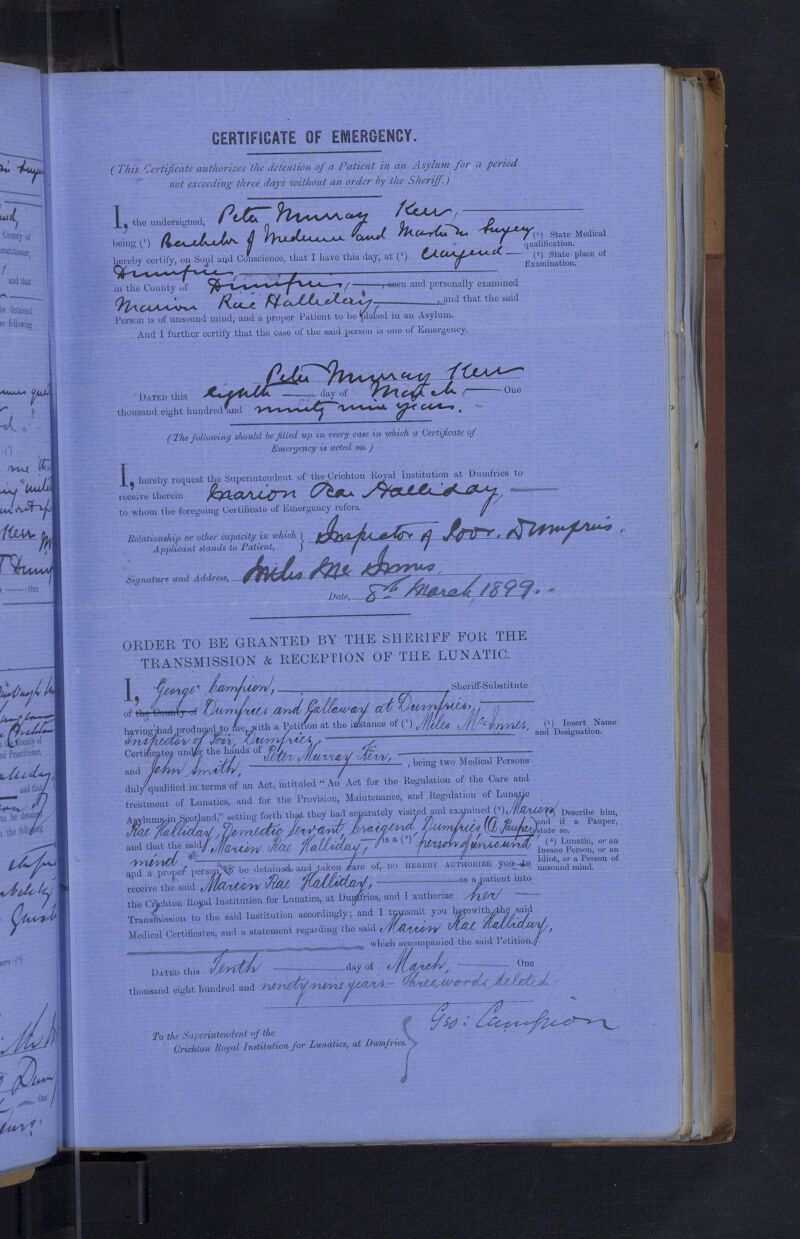 CERTIFICATE OF EMERGENCY.
(This Certificate authorizes the detention of a Patient in an Asylum for a period
not exceeding three days without an order by the Sheriff.)
I, the undersigned, Peter Murray Kerr,
being (¹) Bachelor of Medicine and Master in Surgery (¹) State Medical qualification.
hereby certify, on Soul and Conscience, that I have this day, at (²) Craigend (²) State place of Examination.
Dumfries
in the County of Dumfries, seen and personally examined
Marion Rae Halliday, and that the said
Person is of unsound mind, and a proper Patient to be placed in an Asylum.
And I further certify that the case of the said person is one of Emergency.
Peter Murray Kerr
DATED this eighth day of March, One
thousand eight hundred and ninety nine years.
(The following should be filled up in every case in which a Certificate of
Emergency is acted on.)
I, hereby request the Superintendent of the Crichton Royal Institution at Dumfries to
receive therein Marion Rae Halliday,
to whom the foregoing Certificate of Emergency refers.
Relationship or other capacity in which
Applicant stands to Patient, } Inspector of Poor. Dumfries.
Signature and Address, Miles Mc Innes
Date, 8th March, 1899.
ORDER TO BE GRANTED BY THE SHERIFF FOR THE
TRANSMISSION & RECEPTION OF THE LUNATIC.
I, George Campion, Sheriff-Substitute
of the County of Dumfries and Galloway at Dumfries,
having had produced to me, with a Petition at the instance of (¹) Miles McInnes, (¹) Insert Name and Designation.
Inspector of Poor, Dumfries,
Certificates under the hands of Peter Murray Kerr,
and John Smith, , being two Medical Persons
duly qualified in terms of an Act, intituled "An Act for the Regulation of the Care and
treatment of Lunatics, and for the Provision, Maintenance, and Regulation of Lunatic
Asylums in Scotland," setting forth that they had separately visited and examined (²) Marion (²) Describe him, and if a Pauper, state so.
Rae Halliday, Domestic Servant, Craigend, Dumfries (A Pauper)
and that the said Marion Rae Halliday, is a (³) person of unsound (³) Lunatic, or an Insane Person, or an Idiot, or a Person of unsound mind.
mind,
and a proper person to be detained and taken care of, DO HEREBY AUTHORIZE you to
receive the said Marion Rae Halliday, as a patient into
the Crichton Royal Institution for Lunatics, at Dumfries, and I authorize her
Transmission to the said Institution accordingly; and I transmit you herewith the said
Medical Certificates, and a statement regarding the said Marion Rae Halliday,
which accompanied the said Petition.
DATED this Tenth day of March, One
thousand eight hundred and ninety nine years - three words deleted
Geo: Campion
To the Superintendent of the
Crichton Royal Institution for Lunatics, at Dumfries.